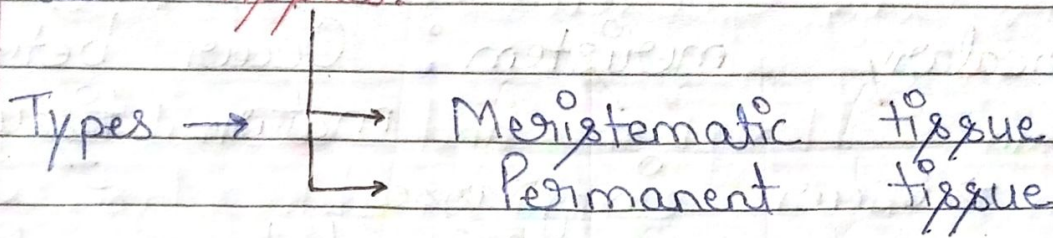 Types → → Meristematic tissue
→ Permanent tissue